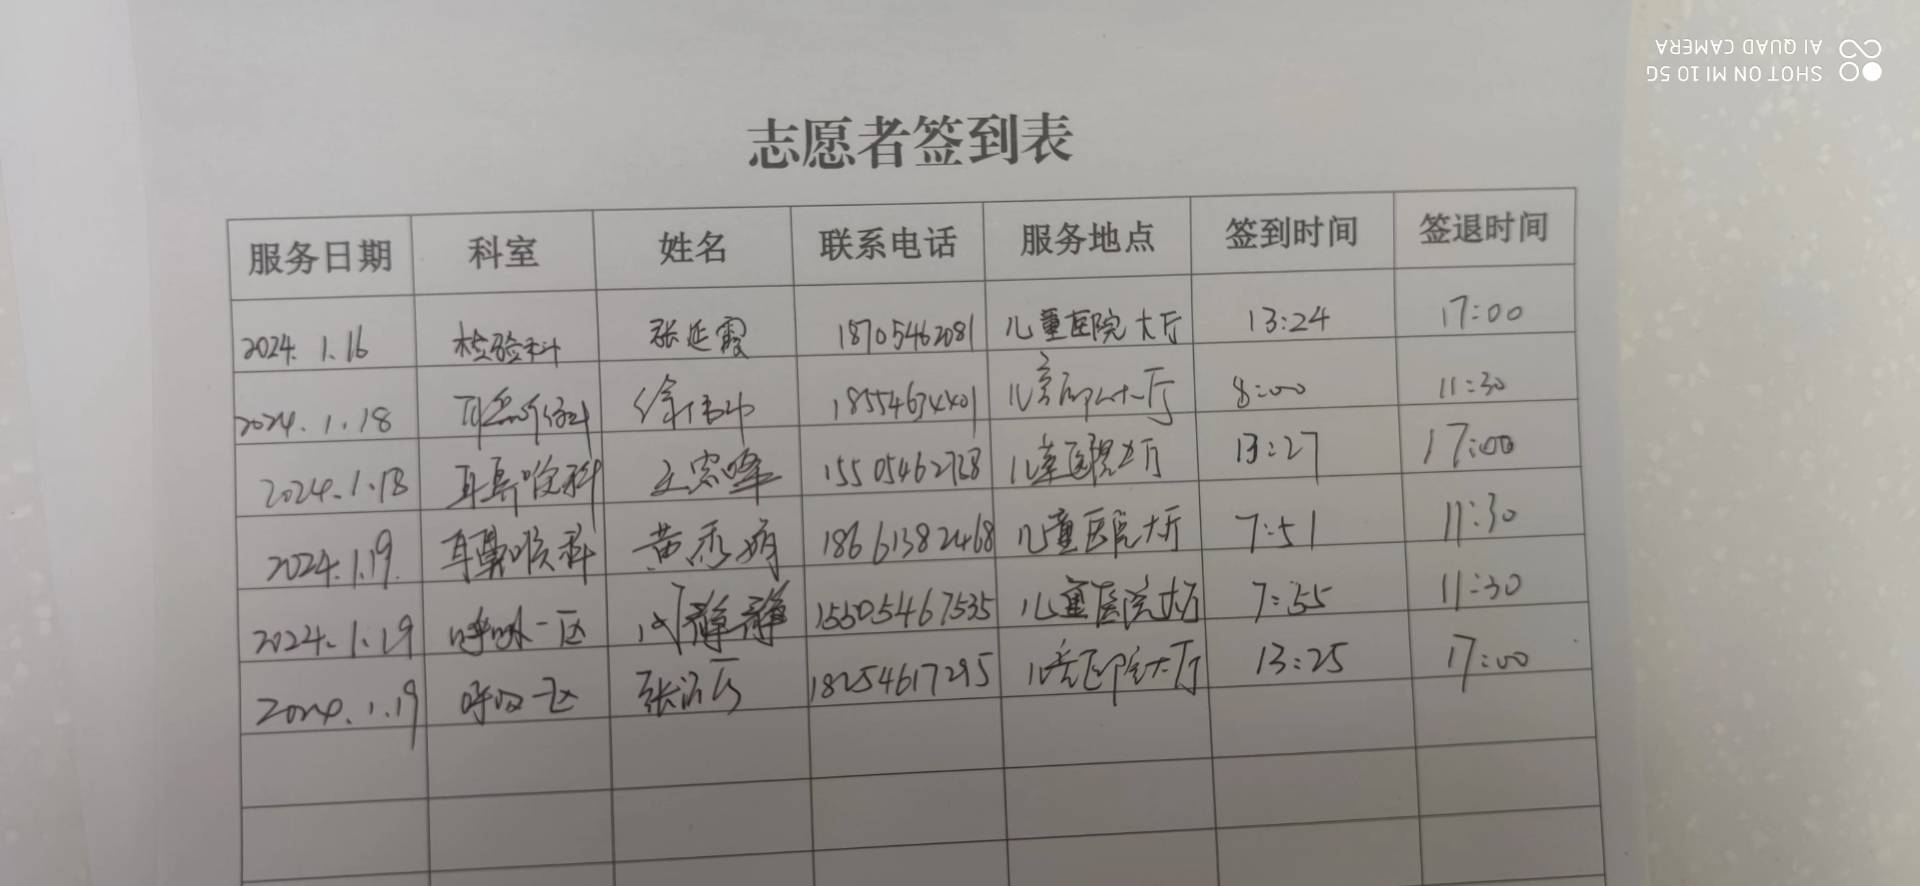 SHOT ON MI 10 5G
AI QUAD CAMERA
志愿者签到表
服务日期 科室 姓名 联系电话 服务地点 签到时间 签退时间
2024.1.16 检验科 张延霞 18705462081 儿童医院大厅 13:24 17:00
2024.1.18 耳鼻喉科 徐 18554634401 儿童医院大厅 8:00 11:30
2024.1.18 耳鼻喉科 峰 15505462728 儿童医院大厅 13:27 17:00
2024.1.19. 耳鼻喉科 黄秀娟 18661382468 儿童医院大厅 7:51 11:30
2024.1.19 呼吸一区 静静 15505467535 儿童医院大厅 7:55 11:30
2024.1.19 呼吸一区 张 18254617295 儿童医院大厅 13:25 17:00